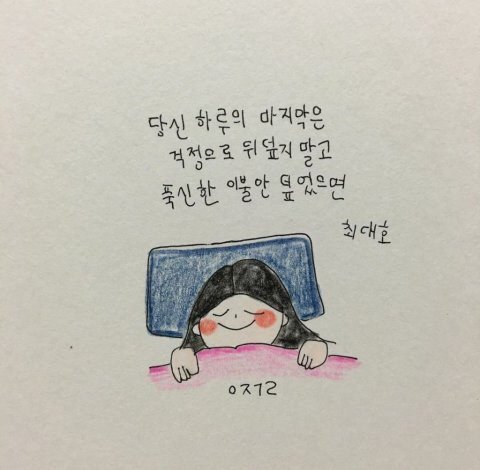 당신 하루의 마지막은
걱정으로 뒤덮지 말고
푹신한 이불만 덮었으면
최대호